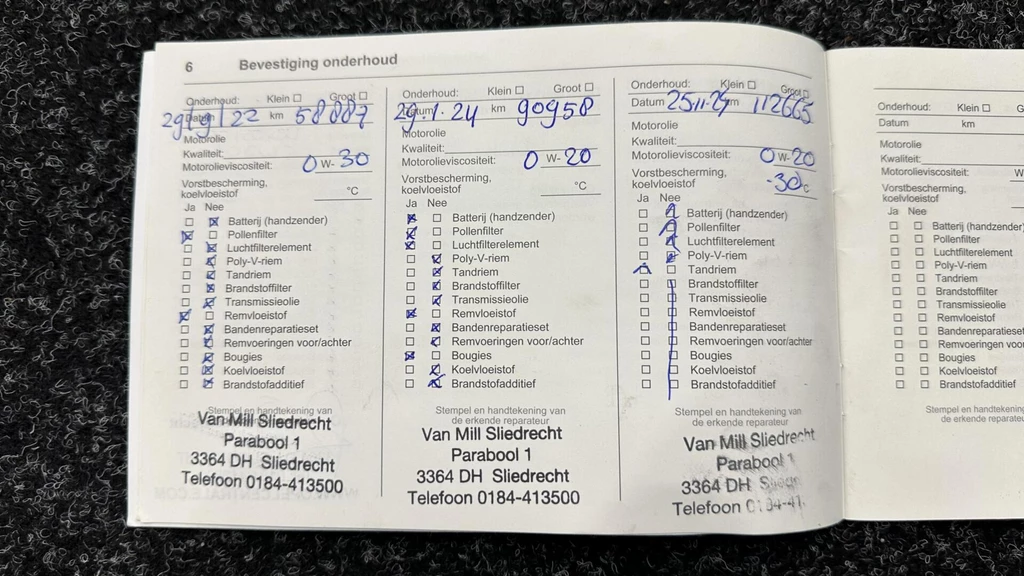 6 Bevestiging onderhoud
Onderhoud: Klein Groot
Datum 29/9/22 km 58887
Motorolie
Kwaliteit:
Motorolieviscositeit: 0 W- 30
Vorstbescherming,
koelvloeistof °C
Ja Nee
Batterij (handzender)
Pollenfilter
Luchtfilterelement
Poly-V-riem
Tandriem
Brandstoffilter
Transmissieolie
Remvloeistof
Bandenreparatieset
Remvoeringen voor/achter
Bougies
Koelvloeistof
Brandstofadditief
Stempel en handtekening van
Van Mill Sliedrecht
Parabool 1
3364 DH Sliedrecht
Telefoon 0184-413500
Onderhoud: Klein Groot
Datum 29.1.24 km 90958
Motorolie
Kwaliteit:
Motorolieviscositeit: 0 W- 20
Vorstbescherming,
koelvloeistof °C
Ja Nee
Batterij (handzender)
Pollenfilter
Luchtfilterelement
Poly-V-riem
Tandriem
Brandstoffilter
Transmissieolie
Remvloeistof
Bandenreparatieset
Remvoeringen voor/achter
Bougies
Koelvloeistof
Brandstofadditief
Stempel en handtekening van
de erkende reparateur
Van Mill Sliedrecht
Parabool 1
3364 DH Sliedrecht
Telefoon 0184-413500
Onderhoud: Klein Groot
Datum 25.11.24 km 112665
Motorolie
Kwaliteit:
Motorolieviscositeit: 0 W- 20
Vorstbescherming,
koelvloeistof -30 °C
Ja Nee
Batterij (handzender)
Pollenfilter
Luchtfilterelement
Poly-V-riem
Tandriem
Brandstoffilter
Transmissieolie
Remvloeistof
Bandenreparatieset
Remvoeringen voor/achter
Bougies
Koelvloeistof
Brandstofadditief
Stempel en handtekening van
de erkende reparateur
Van Mill Sliedrecht
Parabool 1
3364 DH
Telefoon
Onderhoud: Klein G
Datum km
Motorolie
Kwaliteit:
Motorolieviscositeit: W
Vorstbescherming,
koelvloeistof
Ja Nee
Batterij (handzender
Pollenfilter
Luchtfilterelement
Poly-V-riem
Tandriem
Brandstoffilter
Transmissieolie
Remvloeistof
Bandenreparatieset
Remvoeringen voo
Bougies
Koelvloeistof
Brandstofadditief
Stempel en handteken
de erkende reparateur